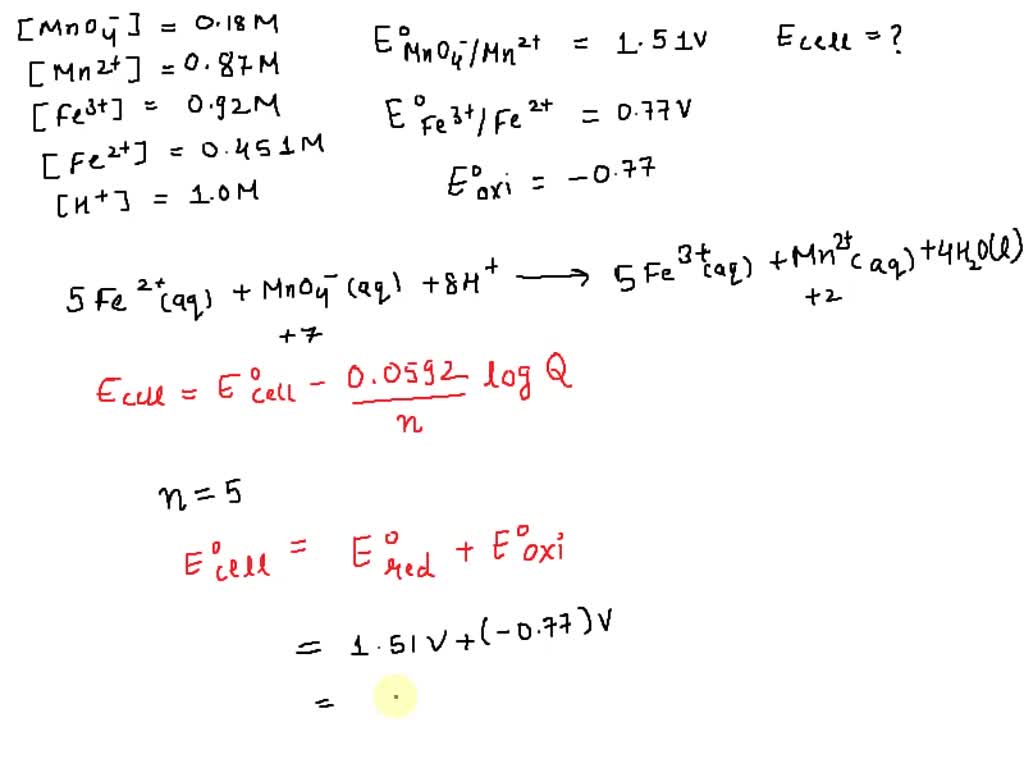 [MnO₄⁻] = 0.18M
[Mn²⁺] = 0.87M
[Fe³⁺] = 0.92M
[Fe²⁺] = 0.451M
[H⁺] = 1.0M
E°MnO₄⁻/Mn²⁺ = 1.51V
E°Fe³⁺/Fe²⁺ = 0.77V
E°oxi = -0.77
Ecell = ?
5Fe²⁺(aq) + MnO₄⁻(aq) + 8H⁺ → 5Fe³⁺(aq) + Mn²⁺(aq) + 4H₂O(l)
+7 +2
Ecell = E°cell - 0.0592/n log Q
n = 5
E°cell = E°red + E°oxi
= 1.51V + (-0.77)V
=